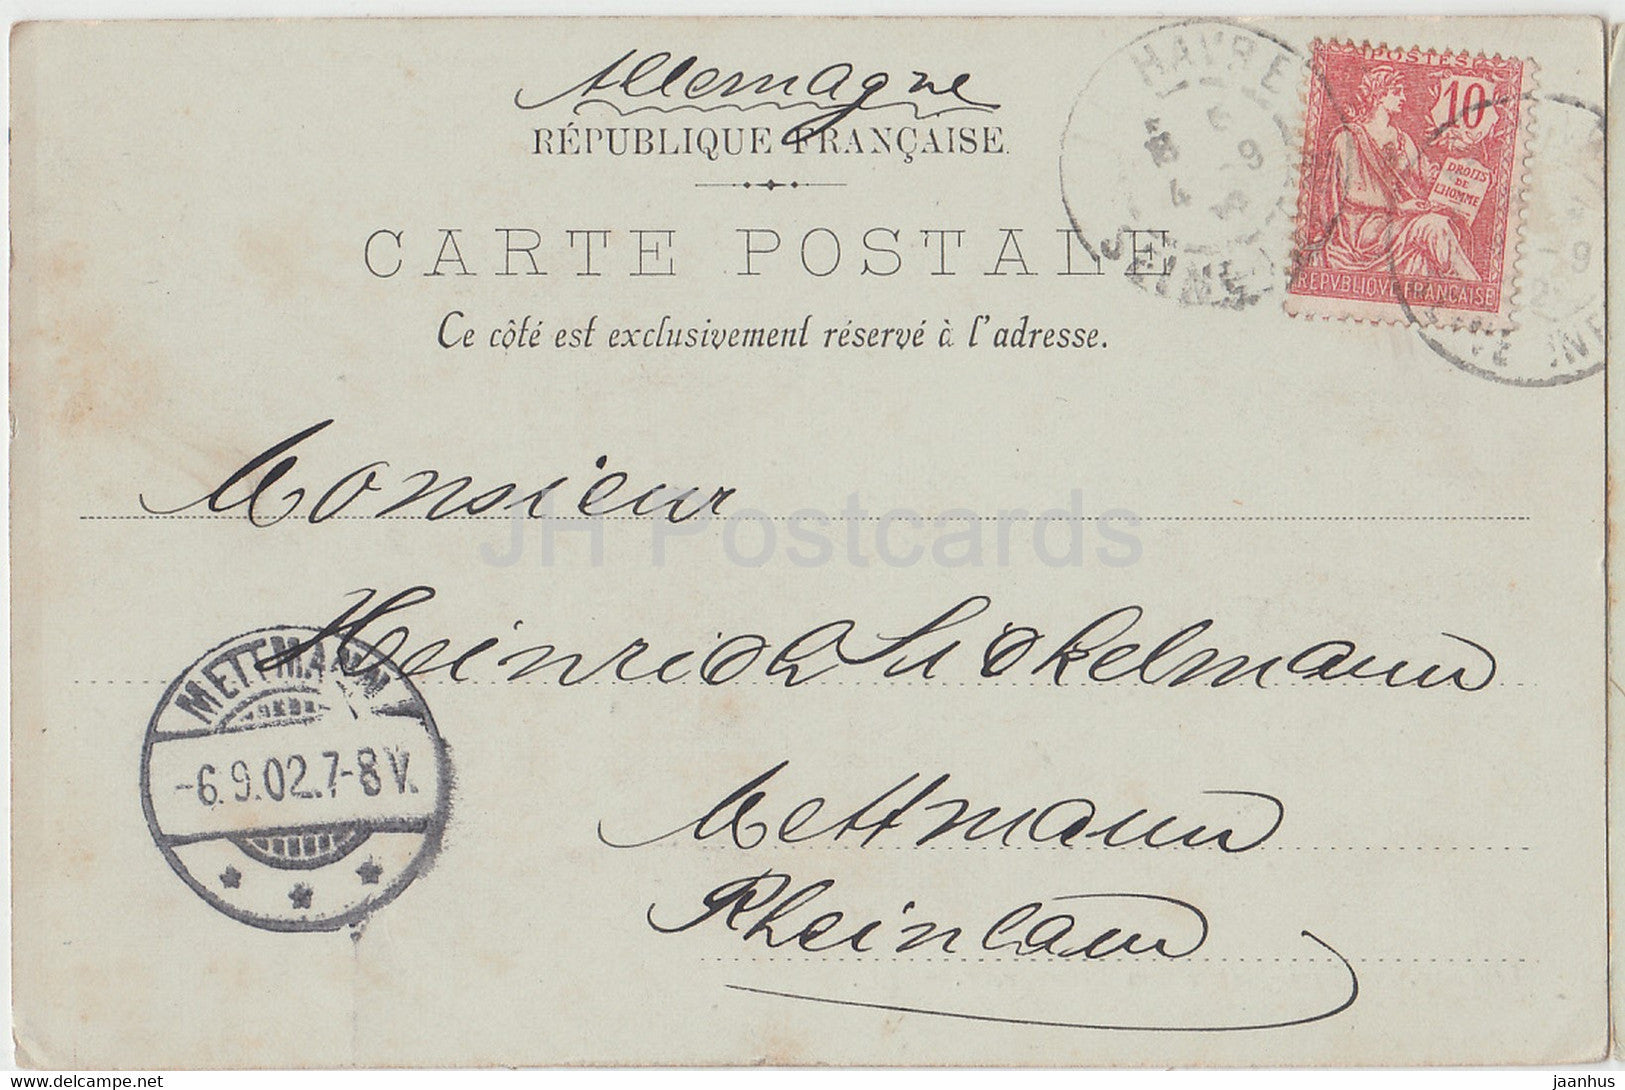 Allemagne
RÉPUBLIQUE FRANÇAISE.
CARTE POSTALE
Ce côté est exclusivement réservé à l'adresse.
HAVRE
5
9
SEINE
POSTES
10
DROITS
DE
L'HOMME
REPVBLIQVE FRANÇAISE
Monsieur
JH Postcards
Heinrich
Mettmann
Rheinland
METTMANN
-6.9.02.7-8V.
delcampe.net
jaanhus